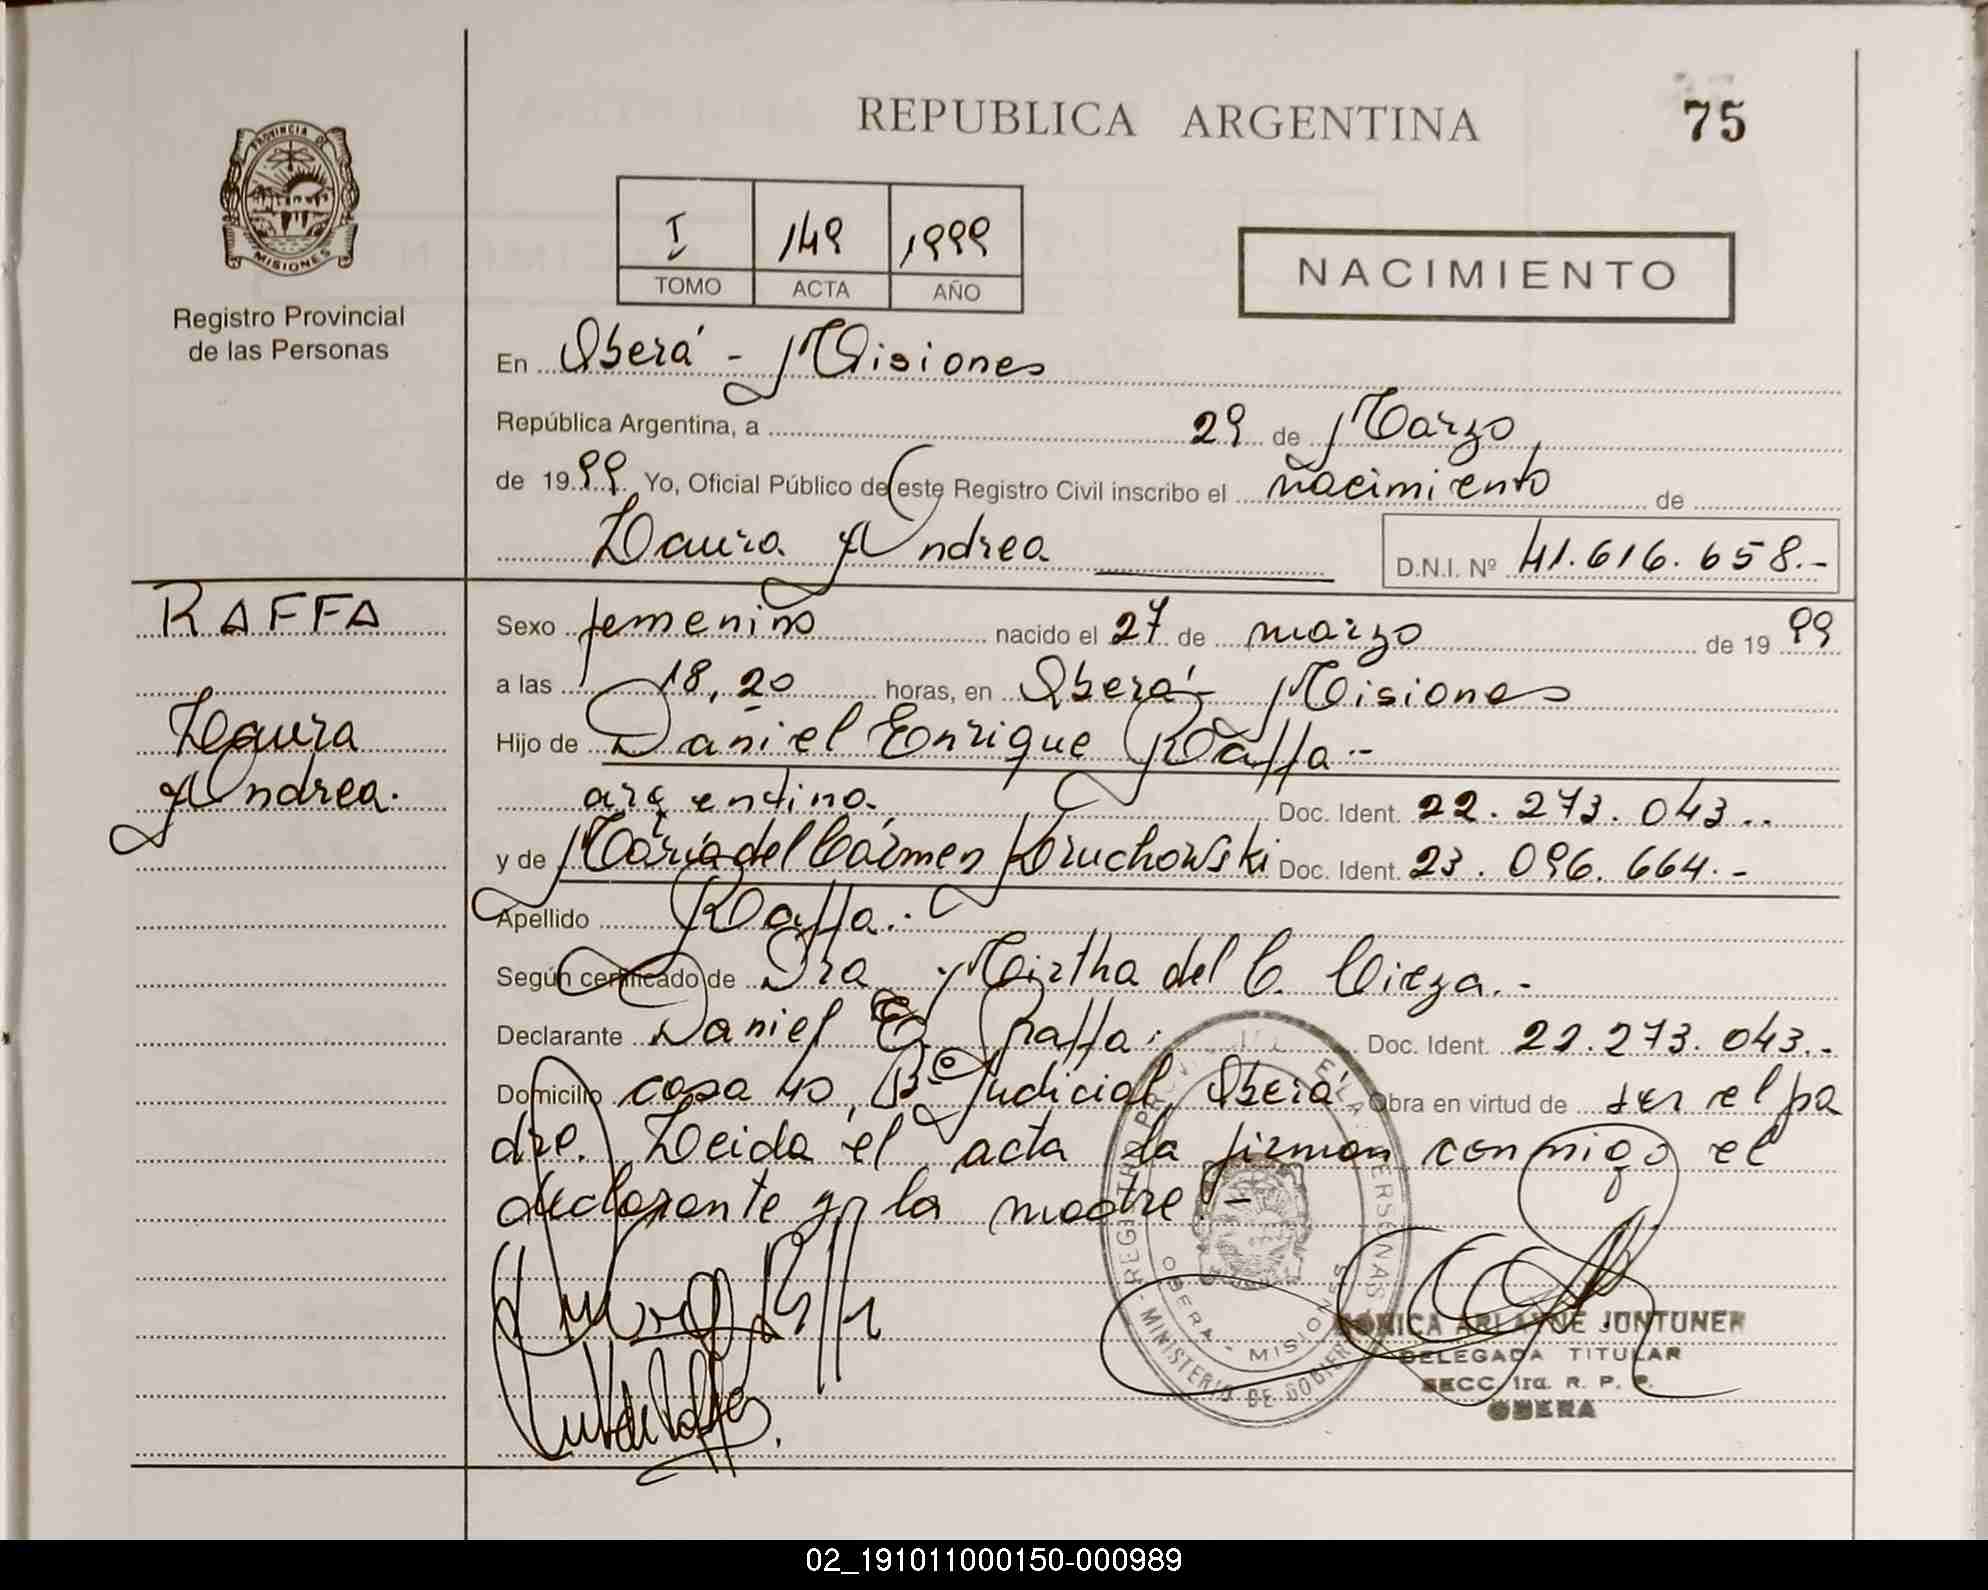 REPUBLICA ARGENTINA
75
PROVINCIA DE
MISIONES
Registro Provincial
de las Personas
I 149 1999
TOMO ACTA AÑO
NACIMIENTO
En Oberá - Misiones
República Argentina, a 29 de Marzo
de 1999 Yo, Oficial Público de este Registro Civil inscribo el nacimiento de
Laura Andrea D.N.I. Nº 41.616.658.-
RAFFA
Laura
Andrea.
Sexo femenino nacido el 27 de marzo de 1999
a las 18,20 horas, en Oberá - Misiones
Hijo de Daniel Enrique Raffa.-
argentino. Doc. Ident. 22.273.043.-
y de María del Cármen Kruchowski Doc. Ident. 23.096.664.-
Apellido Raffa.
Según certificado de Dra Mirtha del C. Cieza.-
Declarante Daniel E. Raffa. Doc. Ident. 22.273.043.-
Domicilio casa 40, Bº Judicial, Oberá Obra en virtud de ser el pa
dre. Leida el acta la firman conmigo el
declarante y la madre.-
REGISTRO PROVINCIAL DE LAS PERSONAS
OBERA - MISIONES
MINISTERIO DE GOBIERNO
MONICA ARLAYNE JONTUNEN
DELEGADA TITULAR
SECC. 1ra. R. P. P.
OBERA
02_191011000150-000989